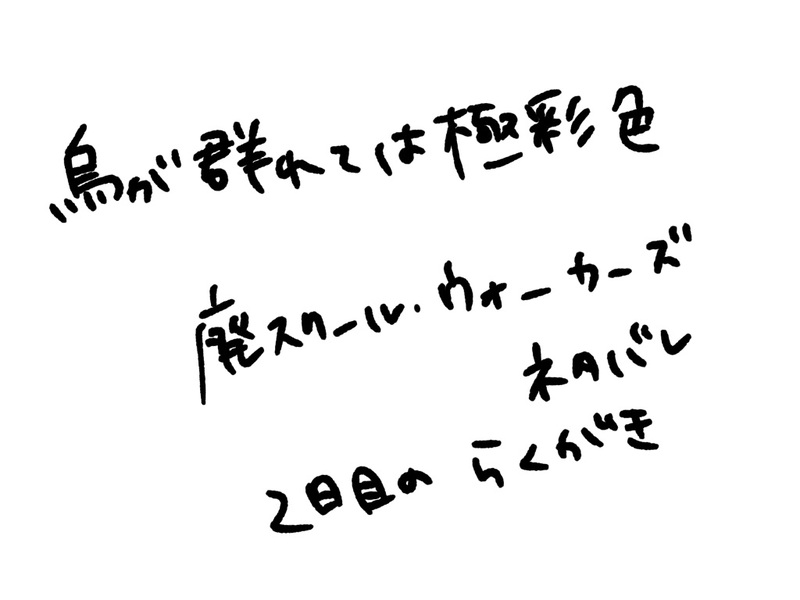 鳥が群れては極彩色
廃スクール・ウォーカーズ
ネタバレ
2日目のらくがき